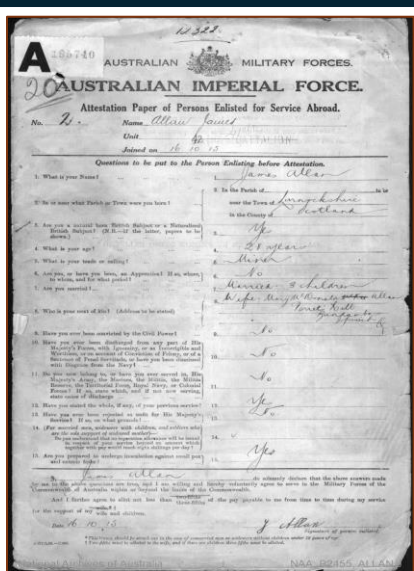 12322
A
20
AUSTRALIAN MILITARY FORCES.
AUSTRALIAN IMPERIAL FORCE.
Attestation Paper of Persons Enlisted for Service Abroad.
No. Name Allan James
Unit
Joined on 16 10 15
Questions to be put to the Person Enlisting before Attestation.
1. What is your Name? 1. James Allan
2. In or near what Parish or Town were you born? 2. In the Parish of in or
near the Town of Lanarkshire
in the County of Scotland
3. Are you a natural born British Subject or a Naturalized
British Subject? (N.B.—If the latter, papers to be
shown.) 3. Yes
4. What is your age? 4. 28 years
5. What is your trade or calling? 5. Miner
6. Are you, or have you been, an Apprentice? If so, where,
to whom, and for what period? 6. No
7. Are you married? 7. Married 3 children
8. Who is your next of kin? (Address to be stated) 8. Wife Allan
9. Have you ever been convicted by the Civil Power? 9. No
10. Have you ever been discharged from any part of His
Majesty's Forces, with Ignominy, or as Incorrigible and
Worthless, or on account of Conviction of Felony, or of a
Sentence of Penal Servitude, or have you been dismissed
with Disgrace from the Navy? 10. No
11. Do you now belong to, or have you ever served in, His
Majesty's Army, the Marines, the Militia, the Militia
Reserve, the Territorial Force, Royal Navy, or Colonial
Forces? If so, state which, and if not now serving,
state cause of discharge 11. No
12. Have you stated the whole, if any, of your previous service? 12. Yes
13. Have you ever been rejected as unfit for His Majesty's
Service? If so, on what grounds? 13. No
14. (For married men, widowers with children, and soldiers who
are the sole support of widowed mother)—
Do you understand that no separation allowance will be issued
in respect of your service beyond an amount which
together with pay would reach eight shillings per day? 14.
15. Are you prepared to undergo inoculation against small pox
and enteric fever? 15. Yes
I, James Allan do solemnly declare that the above answers made
by me to the above questions are true, and I am willing and hereby voluntarily agree to serve in the Military Forces of the
Commonwealth of Australia within or beyond the limits of the Commonwealth.
And I further agree to allot not less than of the pay payable to me from time to time during my service
for the support of my wife and children.
Date 16 10 15 J Allan
Signature of person enlisted.
National Archives of Australia NAA: B2455, ALLAN